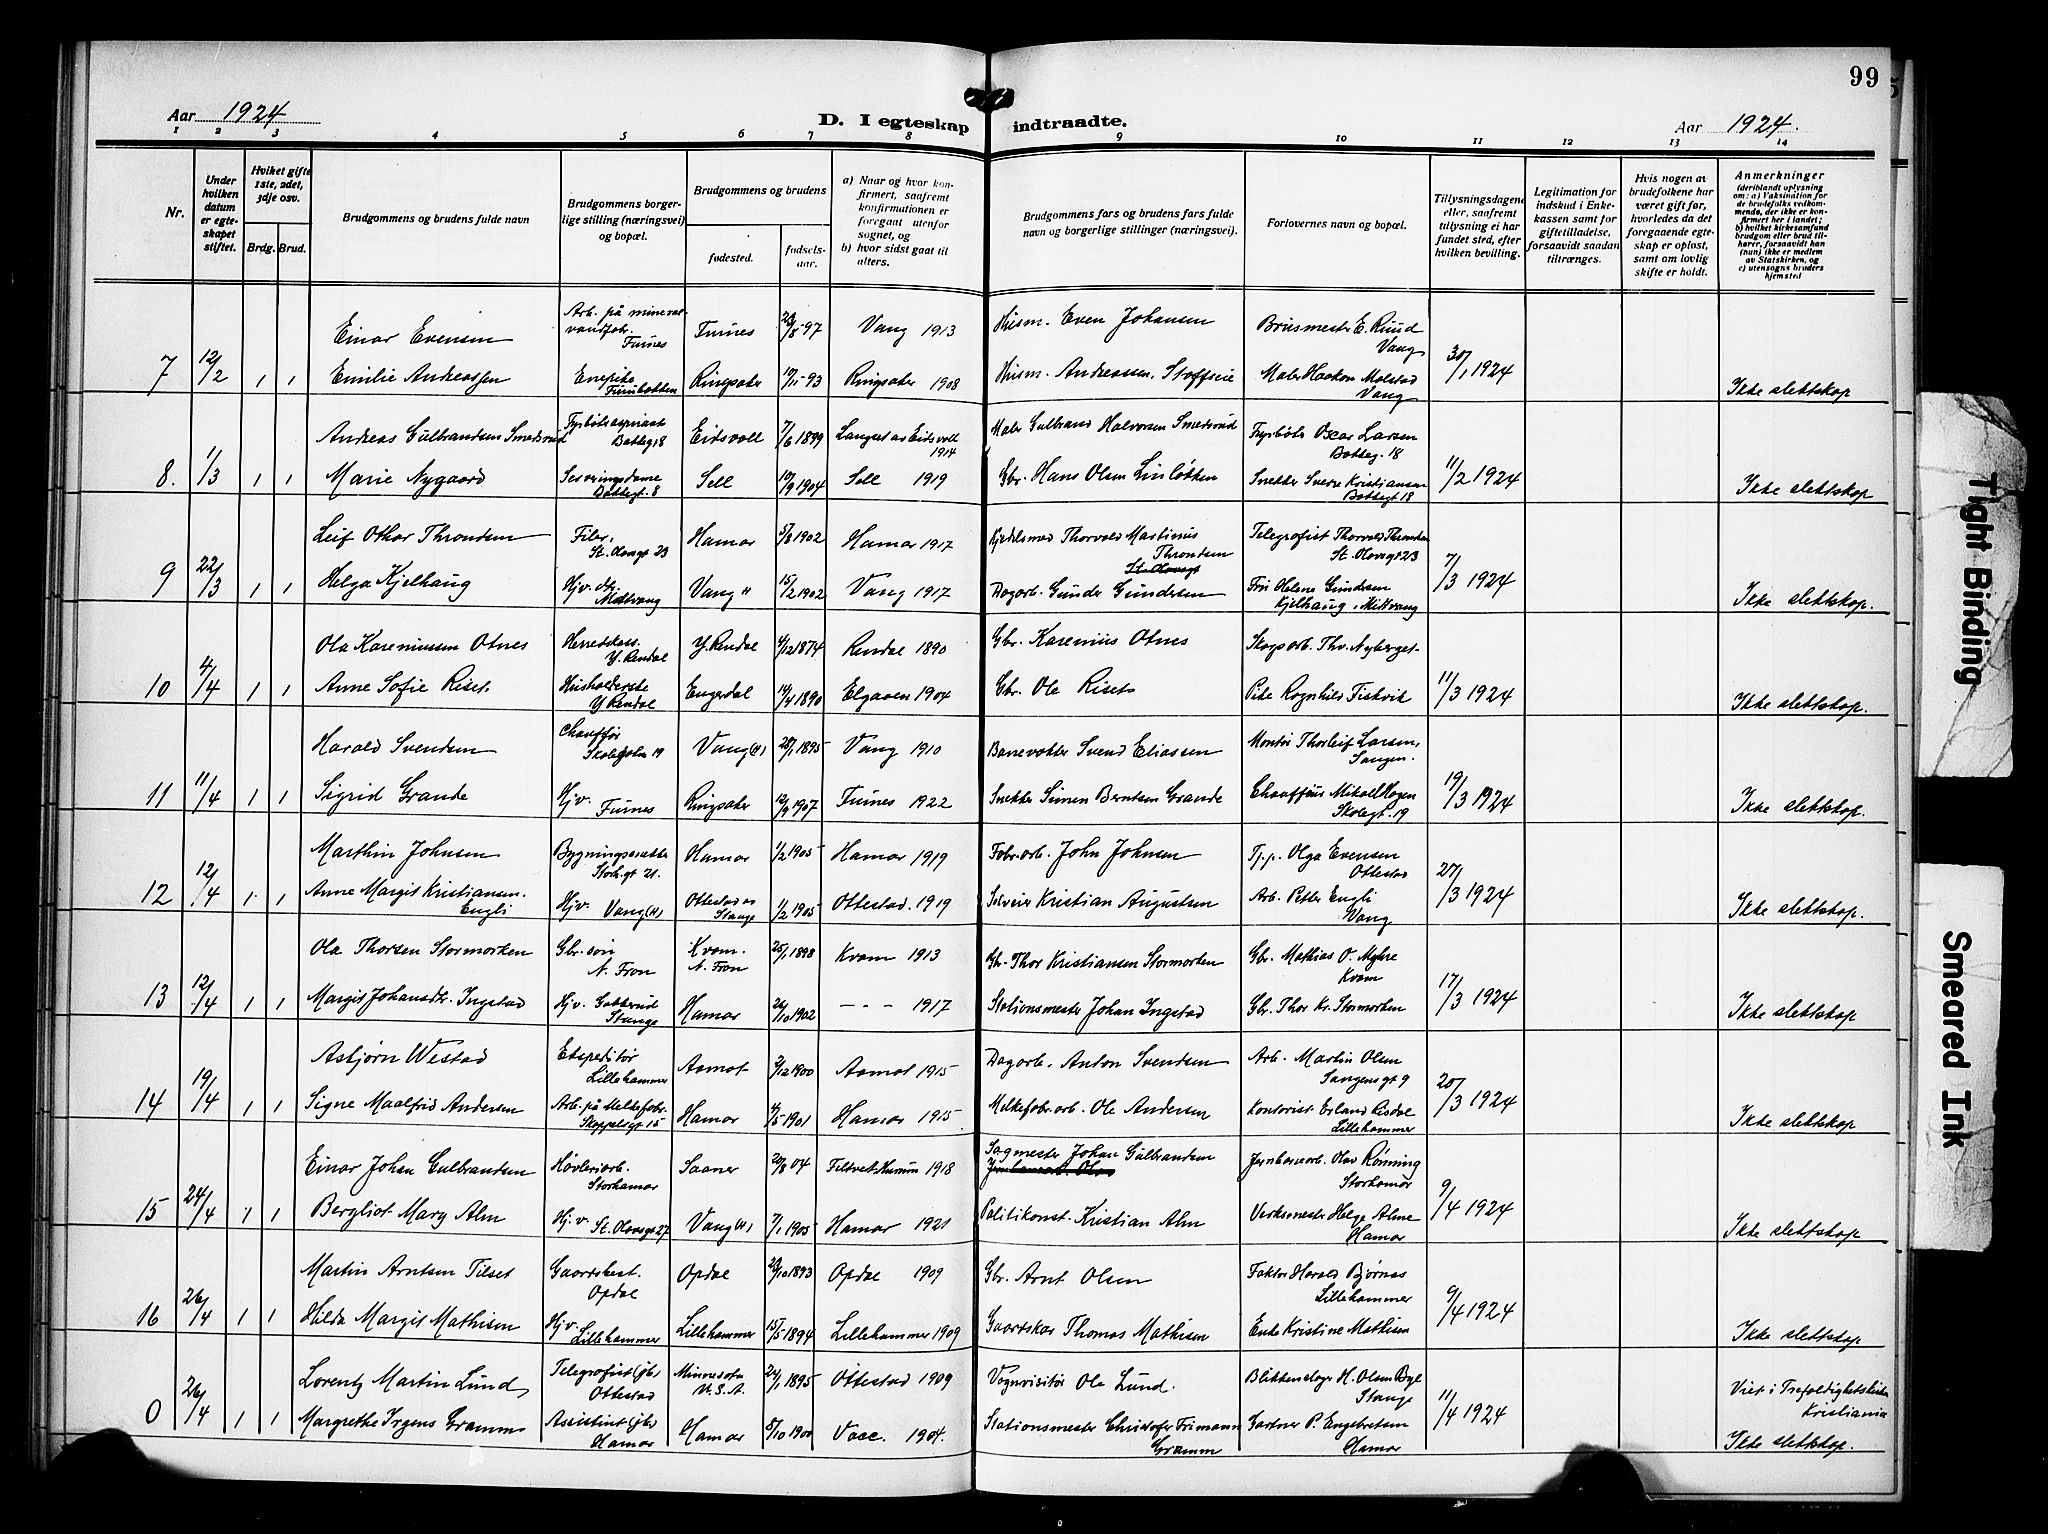 99
Aar 1924
D. I egteskap indtraadte.
Aar 1924.
1 2 3 4 5 6 7 8 9 10 11 12 13 14
Nr.
Under hvilken datum er egteskapet stiftet.
Hviket gifte 1ste, 2det, 3dje osv.
Brdg. Brud.
Brudgommens og brudens fulde navn
Brudgommens borgerlige stilling (næringsvei) og bopæl.
Brudgommens og brudens
fødested.
fødselsaar.
a) Naar og hvor konfirmert, saafremt konfirmationen er foregaat utenfor sognet, og
b) hvor sidst gaat til alters.
Brudgommens fars og brudens fars fulde navn og borgerlige stillinger (næringsvei).
Forlovernes navn og bopæl.
Tillysningsdagene eller, saafremt tillysning ei har fundet sted, efter hvilken bevilling.
Legitimation for indskud i Enkekassen samt for giftetilladelse, forsaavidt saadan tiltrænges.
Hvis nogen av brudefolkene har været gift før, hvorledes da det foregaaende egteskap er opløst, samt om lovlig skifte er holdt.
Anmerkninger
(deriblandt oplysning om: a) Vaksination for de brudefolks vedkommende, der ikke er konfirmert her i landet; b) hvilket kirkesamfund brudgom eller brud tilhører, forsaavidt han (hun) ikke er medlem av Statskirken, og c) utensogns bruders hjemsted
Einar Evensen Arb. på mineralvandfabr. Furnes Furnes 97 Vang 1913 Husm. Even Johansen Brusmester E. Ruud Vang
7 12/2 1 1 Emilie Andreassen Ringsaker 93 Ringsaker 1908 Husm. Andreassen, Maler Haakon Malstad Vang 30/1 1924 Ikke slektskap
Andreas Gulbrandsen Smedsrud Eidsvoll 7/6 1899 Langset av Eidsvoll 1914 Maler Gulbrand Halvorsen Smedsrud Fyrbøter Oscar Larsen 18
8. 1/3 1 1 Marie Nygaard Sell 19/9 1904 Sell 1919 Gbr. Hans Olsen Linløkken Snekker Sverre Kristiansen 18 11/2 1924 Ikke slektskap
Leif Othar Throndsen Filer, St. Olavsgt 23 Hamar 5/8 1902 Hamar 1917 Thorvald Martinus Throndsen Telegrafist Thorvald Throndsen St. Olavsgt 23
9 22/3 1 1 Helga Kjelhaug Hjv. Midtvang Vang " 15/2 1902 Vang 1917 Dagarb. Gunder Gundersen Fru Helene Gundersen Kjelhaug, Midtvang 7/3 1924 Ikke slektskap.
Ola Kareniussen Otnes Herredskass. Y. Rendal Y. Rendal 4/12 1874 Rendal 1890 Gbr. Karenius Otnes Skogsarb. Thv. Nyberget
10 4/4 1 1 Anne Sofie Riset. Husholderske Y. Rendal Engerdal 14/4 1890 Elgaaen 1904 Gbr. Ole Riset Pike Ragnhild Fiskvik 11/3 1924 Ikke slektskap.
Harald Svendsen Chauffør 19 Vang (H) 28/1 1895 Vang 1910 Banevokter Svend Eliassen Montør Thorleif Larsen,
11 11/4 1 1 Sigrid Grande Hjv. Furnes Ringsaker 12/9 1907 Furnes 1922 Snekker Simen Berntsen Grande Chauffør Mikael Hagen Skolegt. 19 19/3 1924 Ikke slektskap.
Marthin Johnsen Hamar 1/2 1905 Hamar 1919 Fabr.arb. John Johnsen Tj.p. Olga Evensen Ottestad
12 12/4 1 1 Anne Margit Kristiansen. Engli Hjv. Vang (H) Ottestad av Stange 1/2 1905 Ottestad. 1919 Selveier Kristian Augustsen Arb. Petter Engli Vang 27/3 1924 Ikke slektskap.
Ola Thorsen Stormorken Gbr. søn N. Fron Kvam. N. Fron 25/1 1898 Kvam 1913 Gbr. Thor Kristiansen Stormorken Gbr. Mathias O. Myhre Kvam
13 12/4 1 1 Margit Johansdtr. Ingstad Hjv. Gubberud Stange Hamar 26/10 1902 - - - 1917 Stationsmester Johan Ingstad Gbr. Thor Kr. Stormorken 17/3 1924 Ikke slektskap
Asbjørn Westad Ekspeditør Lillehammer Aamot 2/12 1900 Aamot 1915 Dagarb. Anton Svendsen Arb. Martin Olsen Vangensgt 9
14 19/4 1 1 Signe Maalfrid Andersen Arb. på Melkefabr. Skappelsgt 15 Hamar 4/5 1901 Hamar 1915 Melkefabr. arb. Ole Andersen Kontorist Erland Risdal Lillehammer 20/3 1924 Ikke slektskap
Einar Johan Gulbrandsen Høvleriarb. Storhamar Saaner 20/8 04 1918 Sagmester Johan Gulbrandsen Jernbanearb. Olav Rønning Storhamar
15 24/4 1 1 Bergliot Mary Alm Hjv. St. Olavsgt 27 Vang (H) 7/1 1905 Hamar 1921 Politikonst. Kristian Alm Verksmester Helge Alme Hamar 9/4 1924 Ikke slektskap
Martin Arntsen Tilset Gaardsbest. Opdal Opdal 23/10 1893 Opdal 1909 Gbr. Arnt Olsen Faktor Harald Bjørnås Lillehammer
16 26/4 1 1 Hilda Margit Mathisen Hjv. Lillehammer Lillehammer 15/5 1894 Lillehammer 1909 Gaardskar Thomas Mathisen Enke Kristine Mathisen 9/4 1924 Ikke slektskap.
Lorentz Martin Lund Telegrafist (jb) Ottestad Minnesota U.S.A. 24/1 1895 Ottestad 1909 Vognvisitør Ole Lund. Blikkenslager H. Olsen Stange Viet i Trefoldighetskirken Kristiania
0 26/4 1 1 Margrethe Irgens Gramm Assistent (jb) Hamar Hamar 5/10 1900 1904. Stationsmester Christofer Frimann Gramm Gartner P. Engebretsen Hamar 11/4 1924 Ikke slektskap.
Tight Binding
Smeared Ink